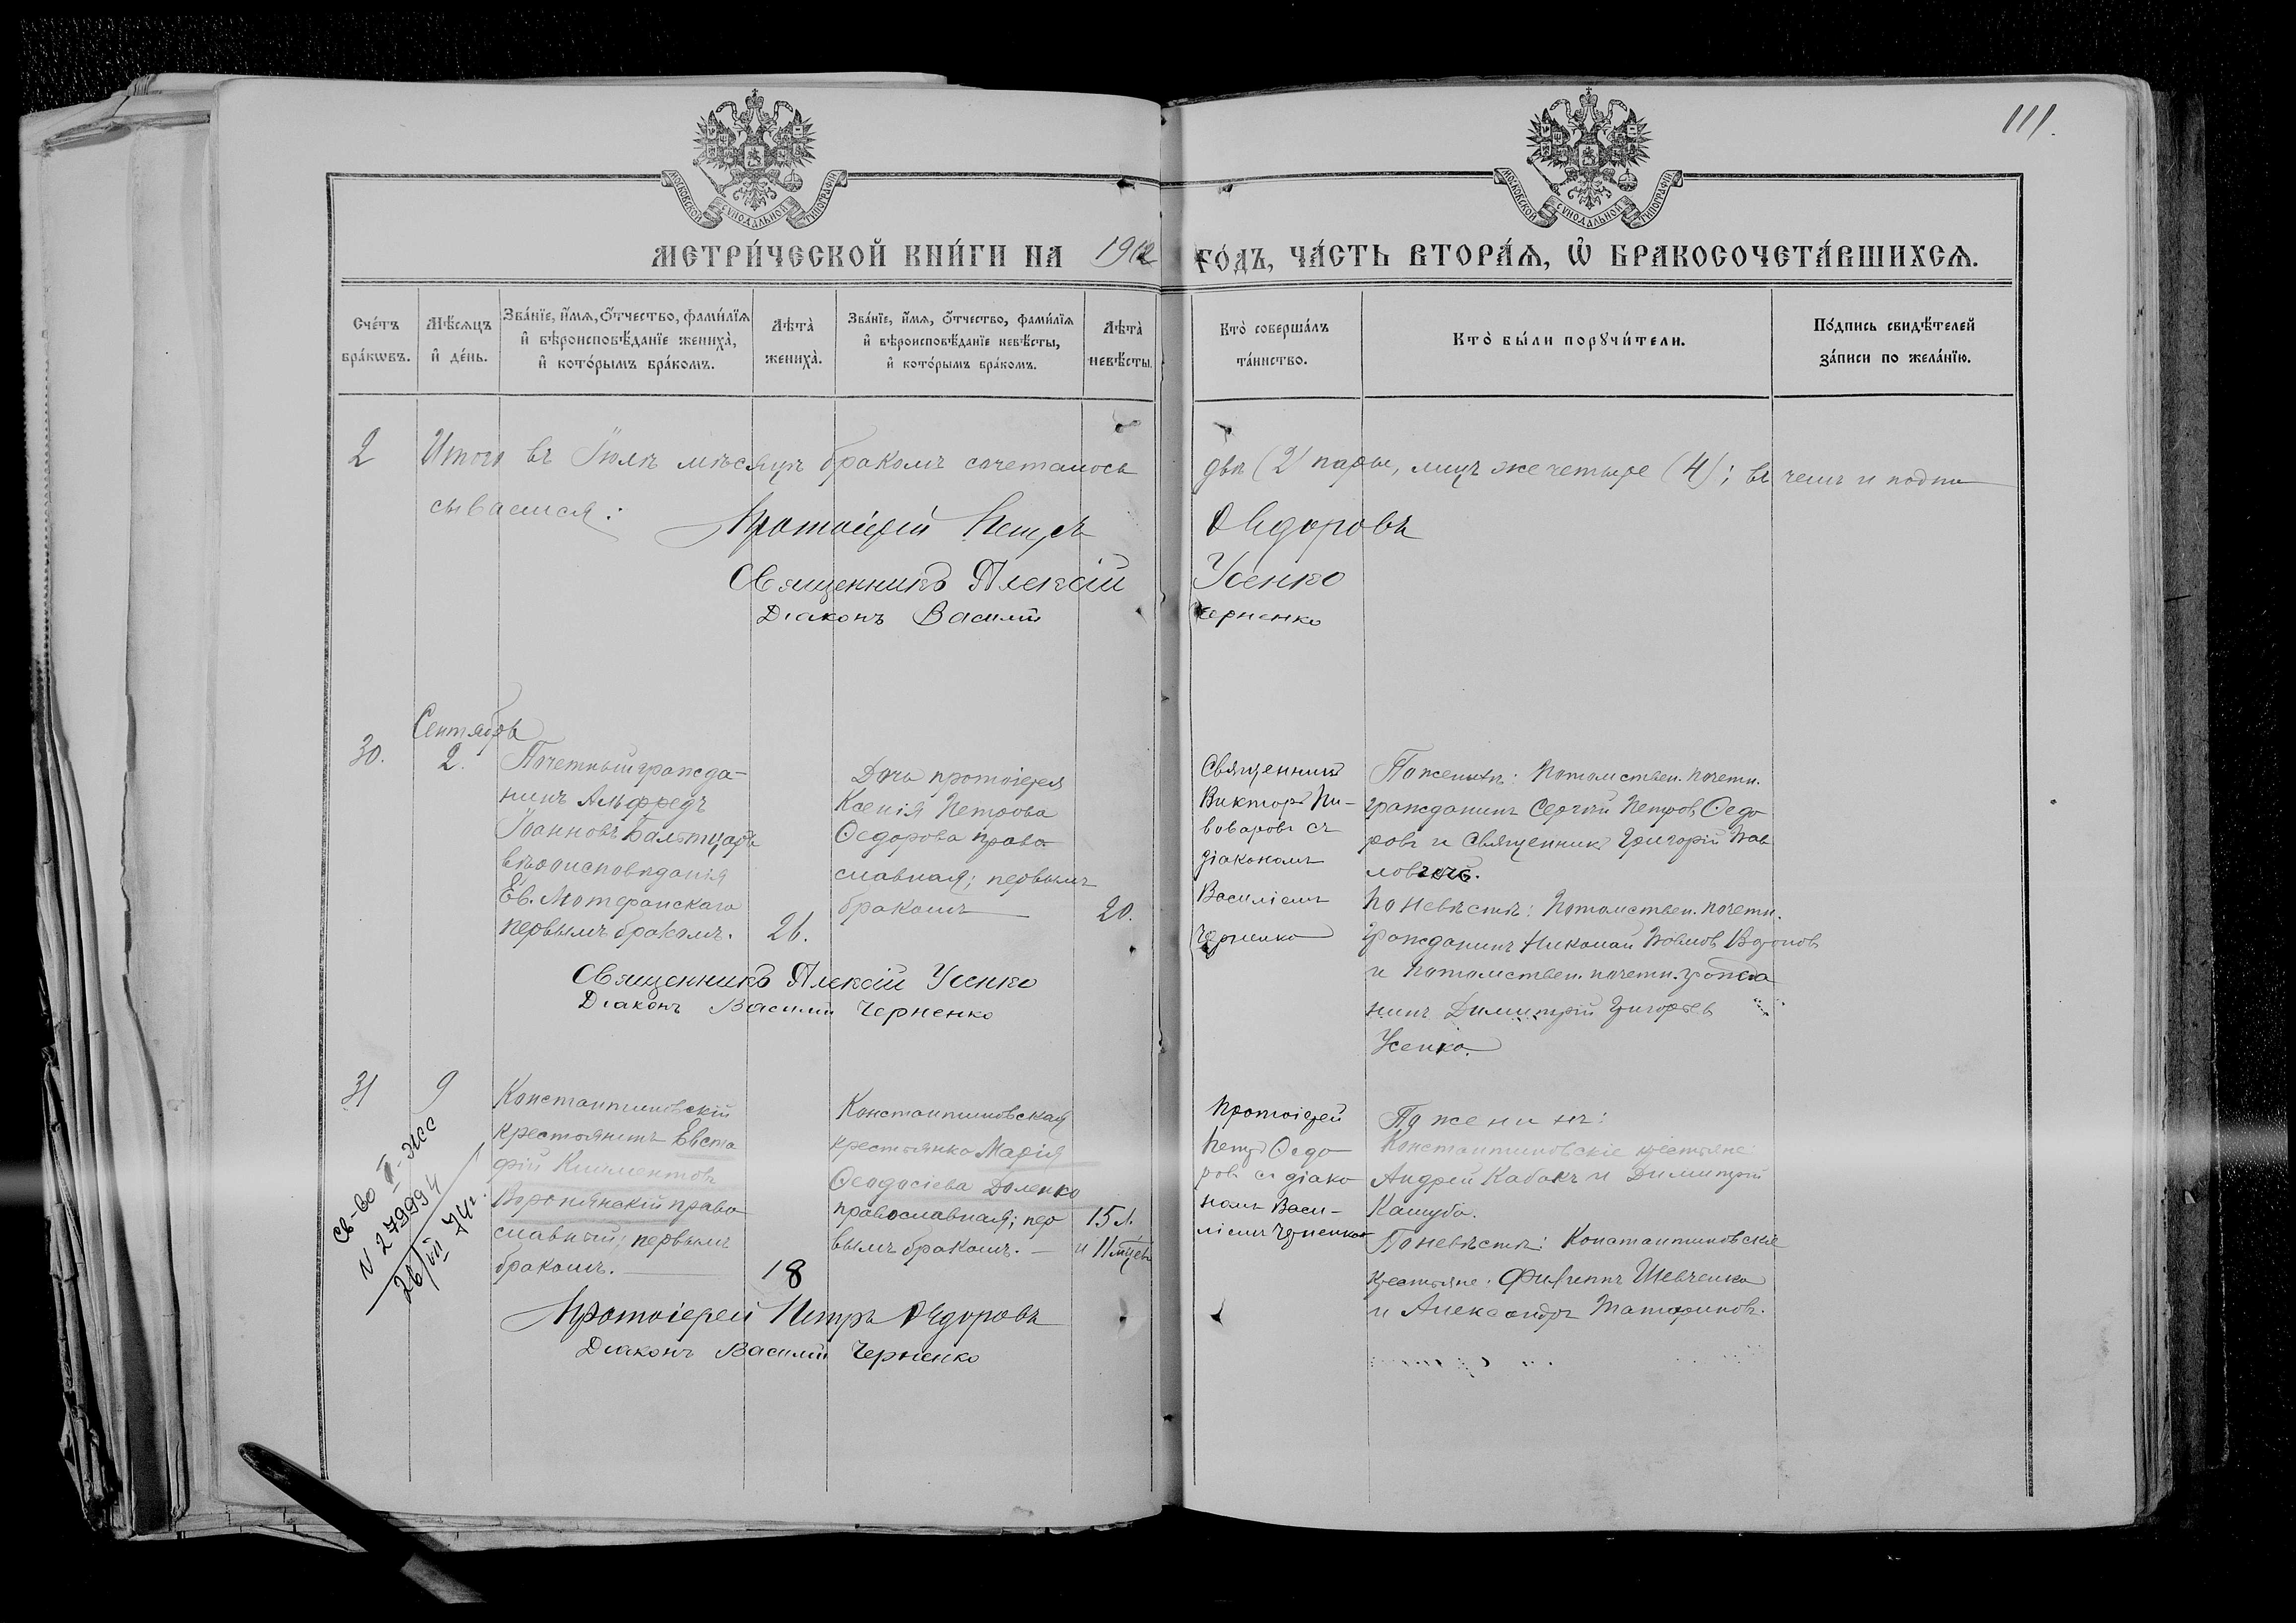 111.
МОСКОВСКОЙ СѴНОДАЛЬНОЙ ТИПОГРАФІИ
МОСКОВСКОЙ СѴНОДАЛЬНОЙ ТИПОГРАФІИ
МЕТРИ́ЧЕСКОЙ КНИ́ГИ НА 1912 ГО́ДЪ, ЧА́СТЬ ВТОРА́Ѧ, Ѽ БРАКОСОЧЕТА́ВШИХСѦ.
Сче́тъ
бра́кѡвъ.
Мѣ́сѧцъ
и҆ де́нь.
Зва́нїе, и҆́мѧ, ѻ҆́тчество, фами́лїѧ
и҆ вѣроисповѣ́данїе жениха̀,
и҆ кото́рымъ бра́комъ.
Лѣта̀
жениха̀.
Зва́нїе, и҆́мѧ, ѻ҆́тчество, фами́лїѧ
и҆ вѣроисповѣ́данїе невѣ́сты,
и҆ кото́рымъ бра́комъ.
Лѣта̀
невѣ́сты.
Кто̀ соверша́лъ
та́инство.
Кто̀ бы́ли порꙋчи́тели.
По́дпись свидѣ́телей
за́писи по жела́нїю.
2 Итого въ Іюлѣ мѣсяцѣ бракомъ сочеталось двѣ (2) пары, лицъ же четыре (4); въ чемъ и подпи
сываемся:
Протоіерей Петръ Ѳедоровъ
Священникъ Алексій Усенко
Діаконъ Василій Черненко
Сентябрь
30.
2.
Почетный гражда-
нинъ Альфредъ
Іоанновъ Балтцаръ
вѣроисповѣданія
Ев. Лютеранскаго
первымъ бракомъ.
26.
Дочь протоіерея
Ксенія Петрова
Ѳедорова право
славная; первымъ
бракомъ
20.
Священникъ
Викторъ Пи-
воваровъ съ
діакономъ
Василіемъ
Черненко
По женихѣ: Потомствен. почетн.
гражданинъ Сергѣй Петровъ Ѳедо
ровъ и Священникъ Григорій Пав
ловскій.
По невѣстѣ: Потомствен. почетн.
гражданинъ Николай Павловъ Вороновъ
и потомствен. почетн. гражда
нинъ Димитрій Григорьевъ
Усенко.
Священникъ Алексій Усенко
Діаконъ Василій Черненко
31
9
Св-во II-ЭСС
N 279994
26/VII 74г.
Константиновскій
крестьянинъ Евста
фій Климентовъ
Воропянскій право
славный; первымъ
бракомъ.
18
Константиновская
крестьянка Марія
Ѳеодосіева Доленко
православная; пер
вымъ бракомъ.
15 л.
и 11 мѣцевъ
Протоіерей
Петръ Ѳедо
ровъ съ діако
номъ Васи-
ліемъ Черненко
По женихѣ:
Константиновскіе крестьяне:
Андрей Кабакъ и Димитрій
Кашуба.
По невѣстѣ: Константиновскіе
крестьяне: Филиппъ Шевченко
и Александръ Татариновъ.
Протоіерей Петръ Ѳедоровъ
Діаконъ Василій Черненко